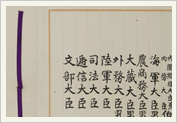 伯
海軍大臣
農商務大臣
大藏大臣
外務大臣
陸軍大臣
司法大臣
遞信大臣
文部大臣